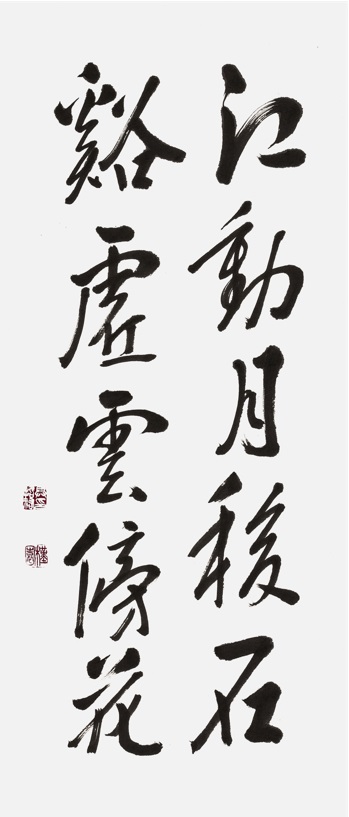 江動月移石
谿虛雲傍花